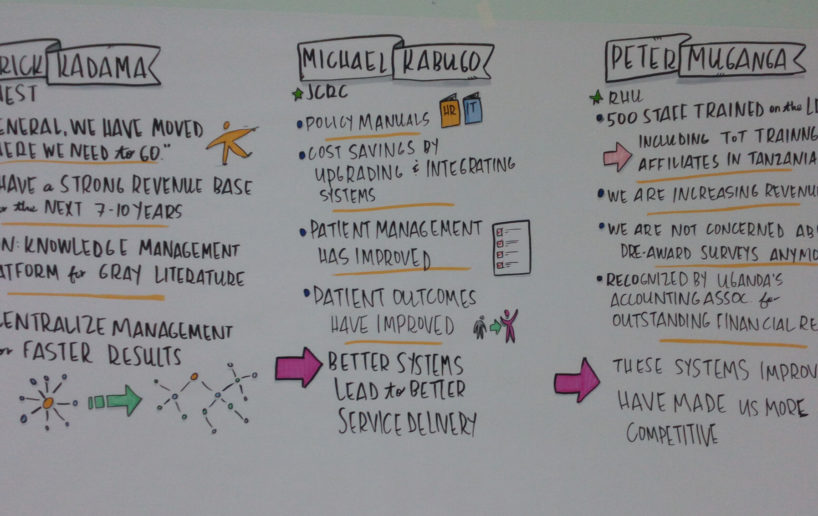 RICK KADAMA
EST
ENERAL, WE HAVE MOVED
HERE WE NEED to GO."
HAVE a STRONG REVENUE BASE
the NEXT 7-10 YEARS
N: KNOWLEDGE MANAGEMENT
ATFORM for GRAY LITERATURE
CENTRALIZE MANAGEMENT
or FASTER RESULTS
MICHAEL KABUGO
JCRC
• POLICY MANUALS
HR IT
• COST SAVINGS BY
UPGRADING & INTEGRATING
SYSTEMS
• PATIENT MANAGEMENT
HAS IMPROVED
• PATIENT OUTCOMES
HAVE IMPROVED
BETTER SYSTEMS
LEAD to BETTER
SERVICE DELIVERY
PETER MUGANGA
RHU
• 500 STAFF TRAINED on the LD
INCLUDING ToT TRAINNG
AFFILIATES IN TANZANIA
• WE ARE INCREASING REVENU
• WE ARE NOT CONCERNED AB
PRE-AWARD SURVEYS ANYMO
• RECOGNIZED BY UGANDA'S
ACCOUNTING ASSOC. for
OUTSTANDING FINANCIAL RE
THESE SYSTEMS IMPROV
HAVE MADE US MORE
COMPETITIVE